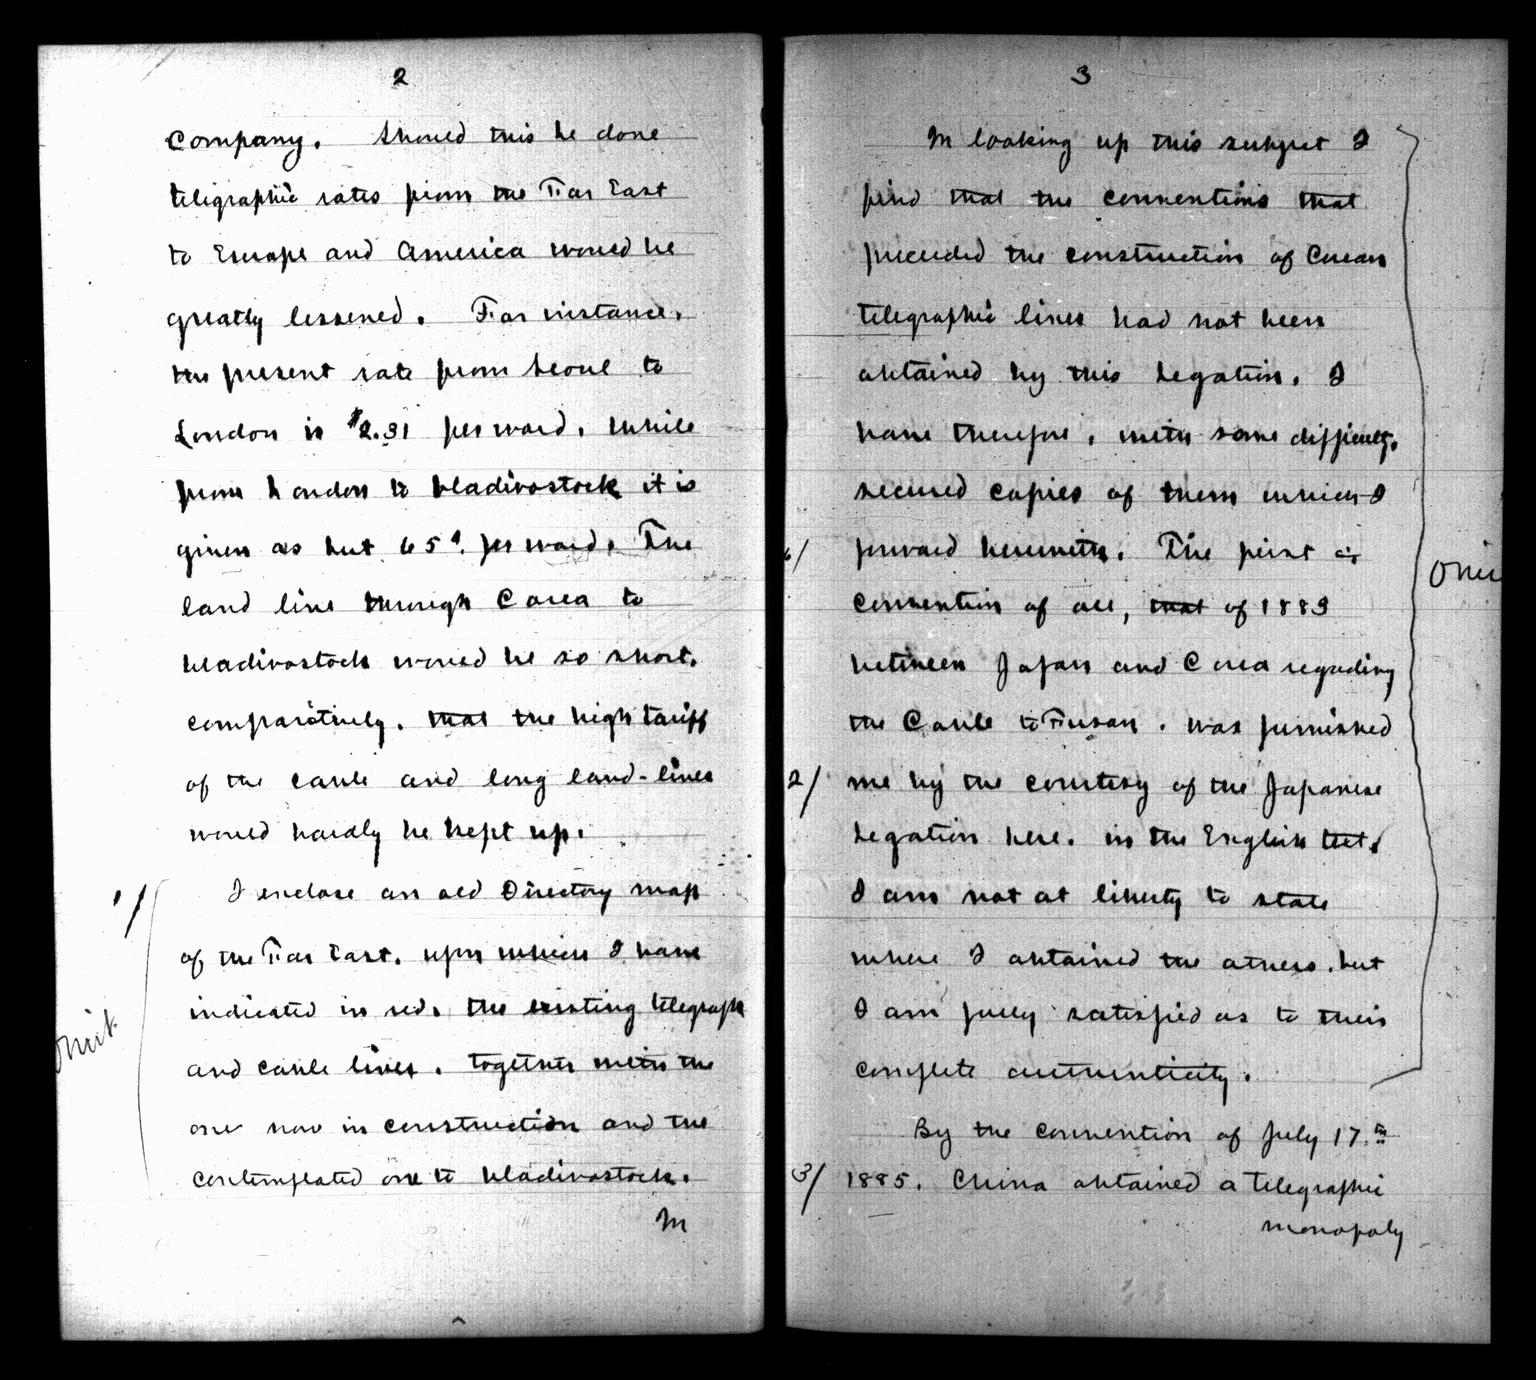 2
Company. Should this be done
telegraphic rates from the Far East
to Europe and America would be
greatly lessened. For instance,
the present rate from Seoul to
London is $2.31 per word, while
from London to Vladivostock it is
given as but 65¢. per word. The
land line through Corea to
Vladivostock would be so short,
comparatively, that the high tariff
of the cable and long land-lines
would hardly be kept up.
1/ I enclose an old Directory map
of the Far East, upon which I have
indicated in red, the existing telegraph
Omit
and cable lines, together with the
one now in construction and the
contemplated one to Vladivostock.
In
3
In looking up this subject I
find that the conventions that
preceded the construction of Corean
telegraphic lines had not been
obtained by this Legation. I
have therefore, with some difficulty,
secured copies of them which I
forward herewith. The first
Omit
convention of all, that of 1883
between Japan and Corea regading
the Cable to Fusan, was furnished
2/ me by the courtesy of the Japanese
Legation here, in the English text.
I am not at liberty to state
where I obtained the others, but
I am fully satisfied as to their
complete authenticity.
By the convention of July 17th
3/ 1885, China obtained a telegraphic
monopoly